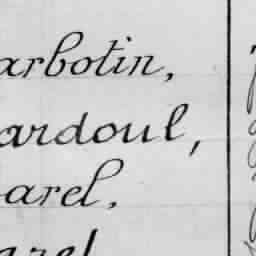 arbotin,
ardoul,
arel.
arel